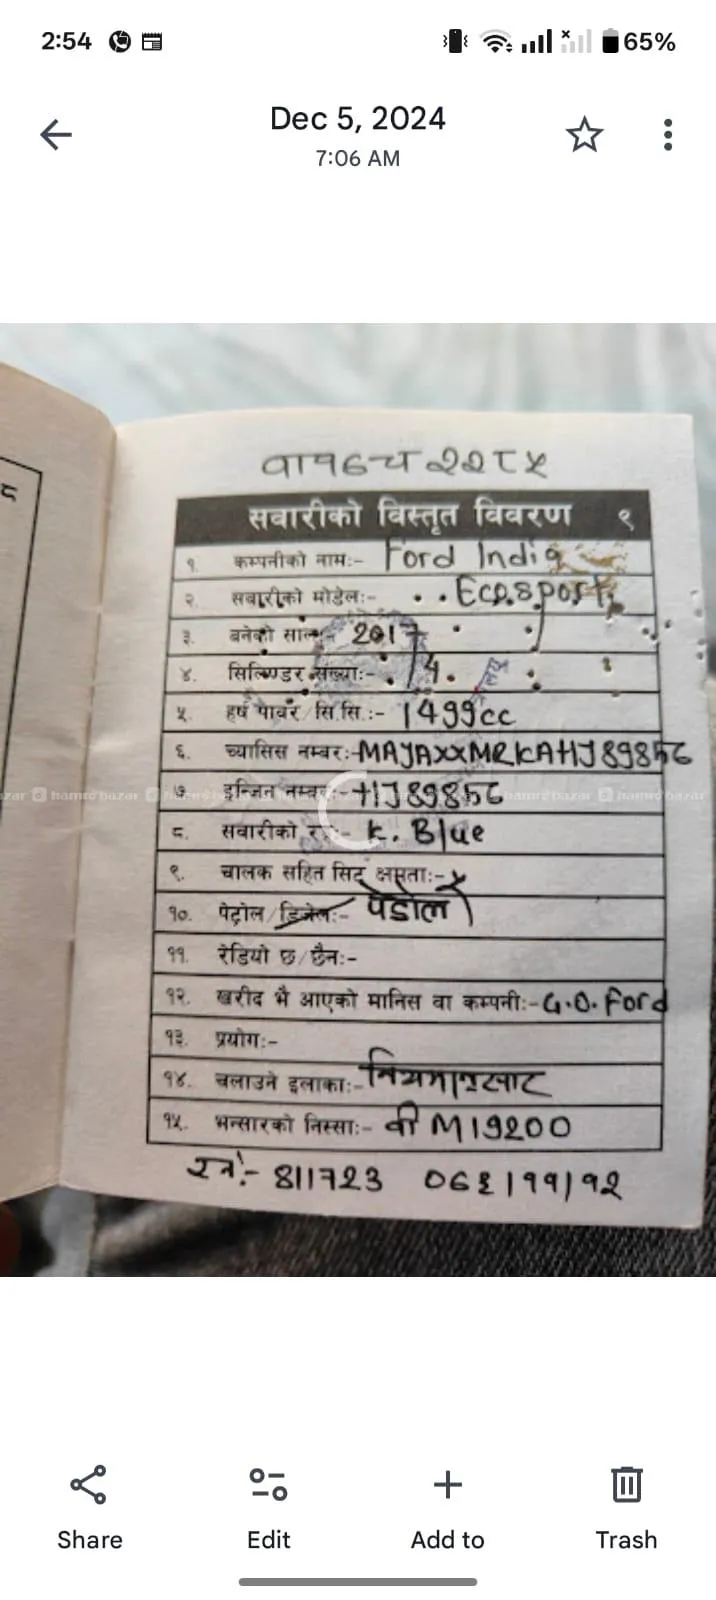 2:54 65%
Dec 5, 2024
7:06 AM
८
बा१८च २२८५
सवारीको विस्तृत विवरण ९
१. कम्पनीको नामः- Ford India
२. सवारीको मोडेलः- Ecosport
३. बनेको सालः- 2017
४. सिलिण्डर संख्याः- 4
५. हर्ष पावर/सि.सि.ः- 1499cc
६. च्यासिस नम्बरः- MAJAXXMRKAHJ89856
७. इन्जिन नम्बरः- HJ89856
hamrobazar hamrobazar
८. सवारीको रङ्गः- K. Blue
९. चालक सहित सिट क्षमताः- ५
१०. पेट्रोल/डिजेलः- पेट्रोल
११. रेडियो छ/छैनः-
१२. खरीद भै आएको मानिस वा कम्पनीः- G.O. Ford
१३. प्रयोगः-
१४. चलाउने इलाकाः- नियमानुसार
१५. भन्सारको निस्साः- वी M19200
811723 ०६।११।१२
Share Edit Add to Trash